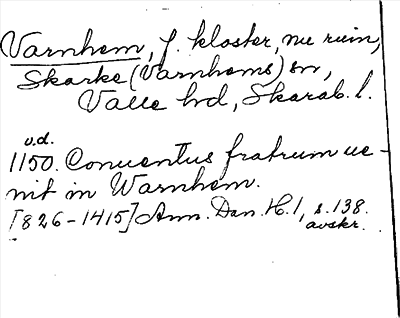 Varnhem, f. kloster, nu ruin,
Skarke (Varnhems) sn,
Valle hd, Skarab. l.
u.d.
1150. Conuentus fratrum ue-
nit in Warnhem.
[826-1415] Ann. Dan. H. 1, s. 138.
avskr.